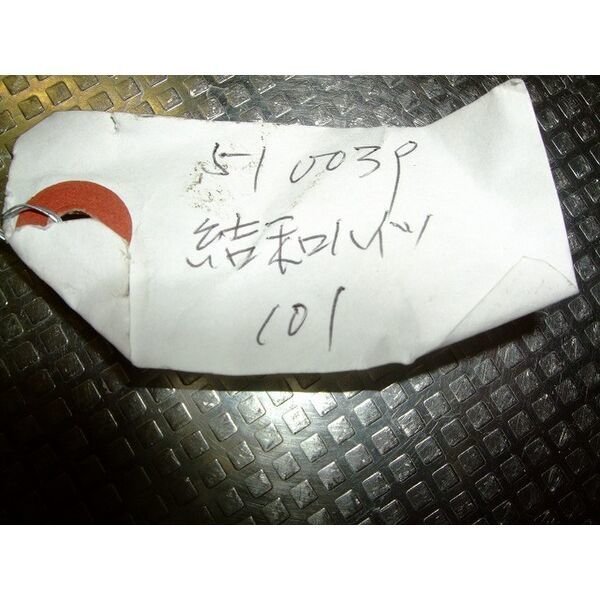 510039
結和ハイツ
101